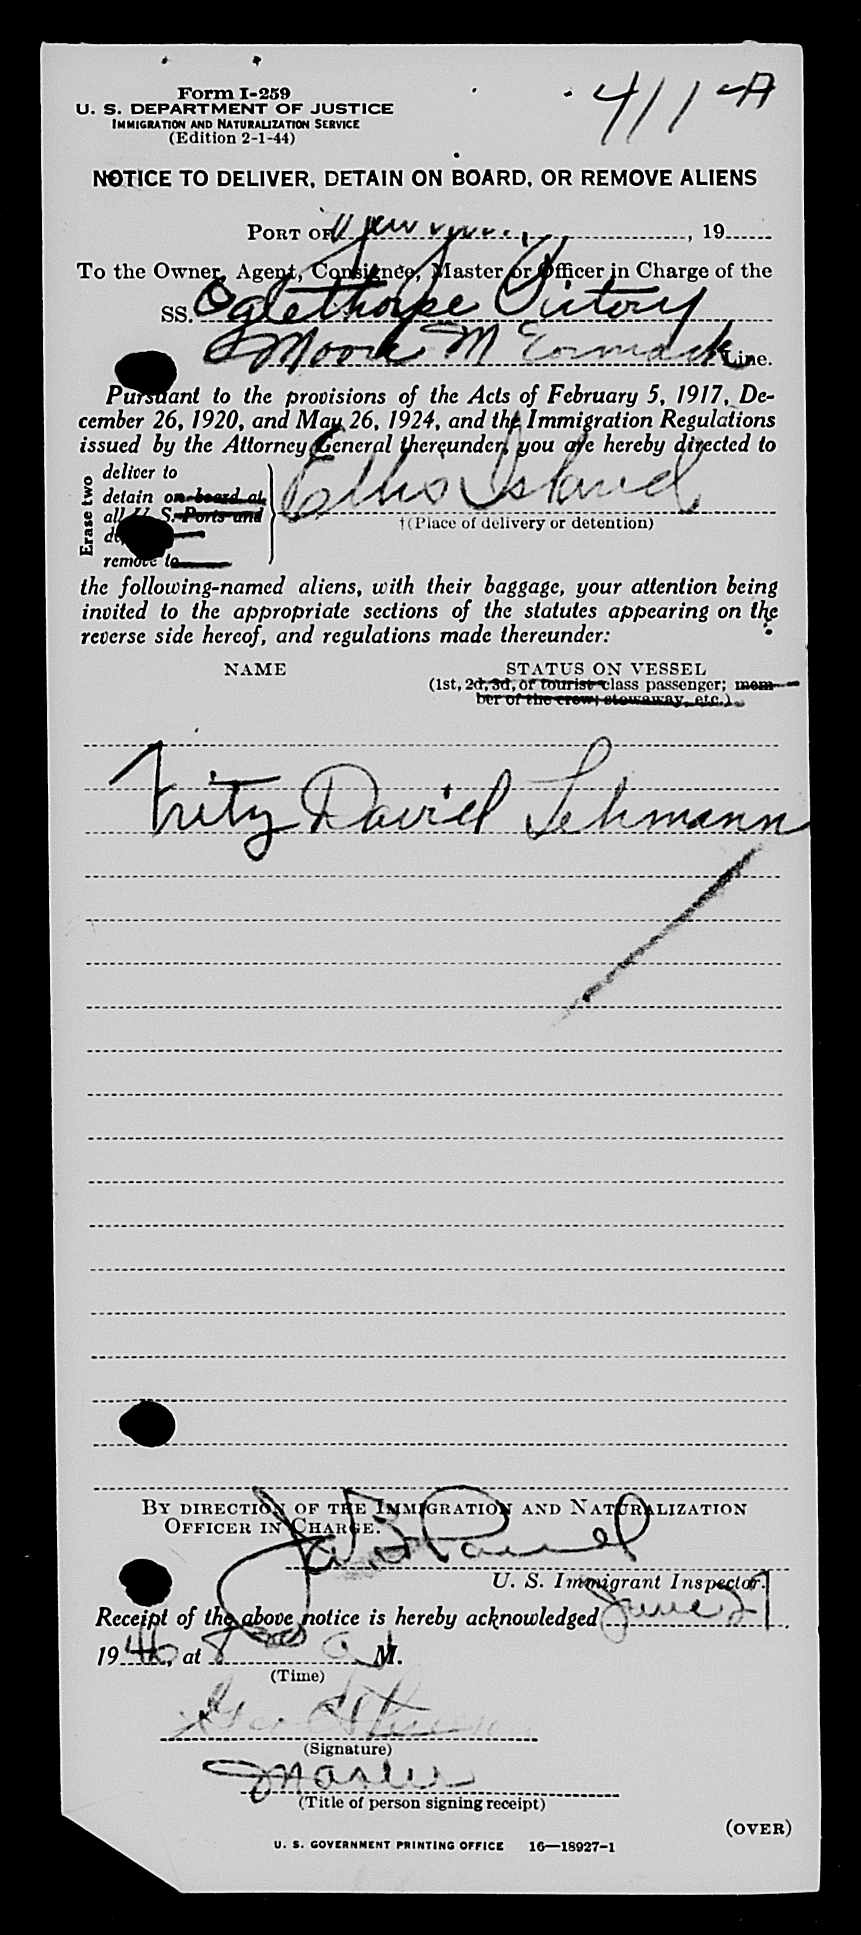 Form I-259
411-A
U. S. DEPARTMENT OF JUSTICE
IMMIGRATION AND NATURALIZATION SERVICE
(Edition 2-1-44)
NOTICE TO DELIVER, DETAIN ON BOARD, OR REMOVE ALIENS
PORT OF New York, 19
To the Owner, Agent, Consignee, Master or Officer in Charge of the
SS. Oglethorpe Victory
Moore McCormack Line.
Pursuant to the provisions of the Acts of February 5, 1917, De-
cember 26, 1920, and May 26, 1924, and the Immigration Regulations
issued by the Attorney General thereunder, you are hereby directed to
Erase two
deliver to
detain on board at
all U. S. Ports and
remove to
Ellis Island
†(Place of delivery or detention)
the following-named aliens, with their baggage, your attention being
invited to the appropriate sections of the statutes appearing on the
reverse side hereof, and regulations made thereunder:
NAME STATUS ON VESSEL
(1st, 2d, 3d, or tourist class passenger; mem-
ber of the crew; stowaway, etc.)
Fritz David Lehmann
BY DIRECTION OF THE IMMIGRATION AND NATURALIZATION
OFFICER IN CHARGE.
U. S. Immigrant Inspector.
Receipt of the above notice is hereby acknowledged June 27,
1946, at 8 00 A M.
(Time)
(Signature)
Master
(Title of person signing receipt)
(OVER)
U. S. GOVERNMENT PRINTING OFFICE 16—18927-1